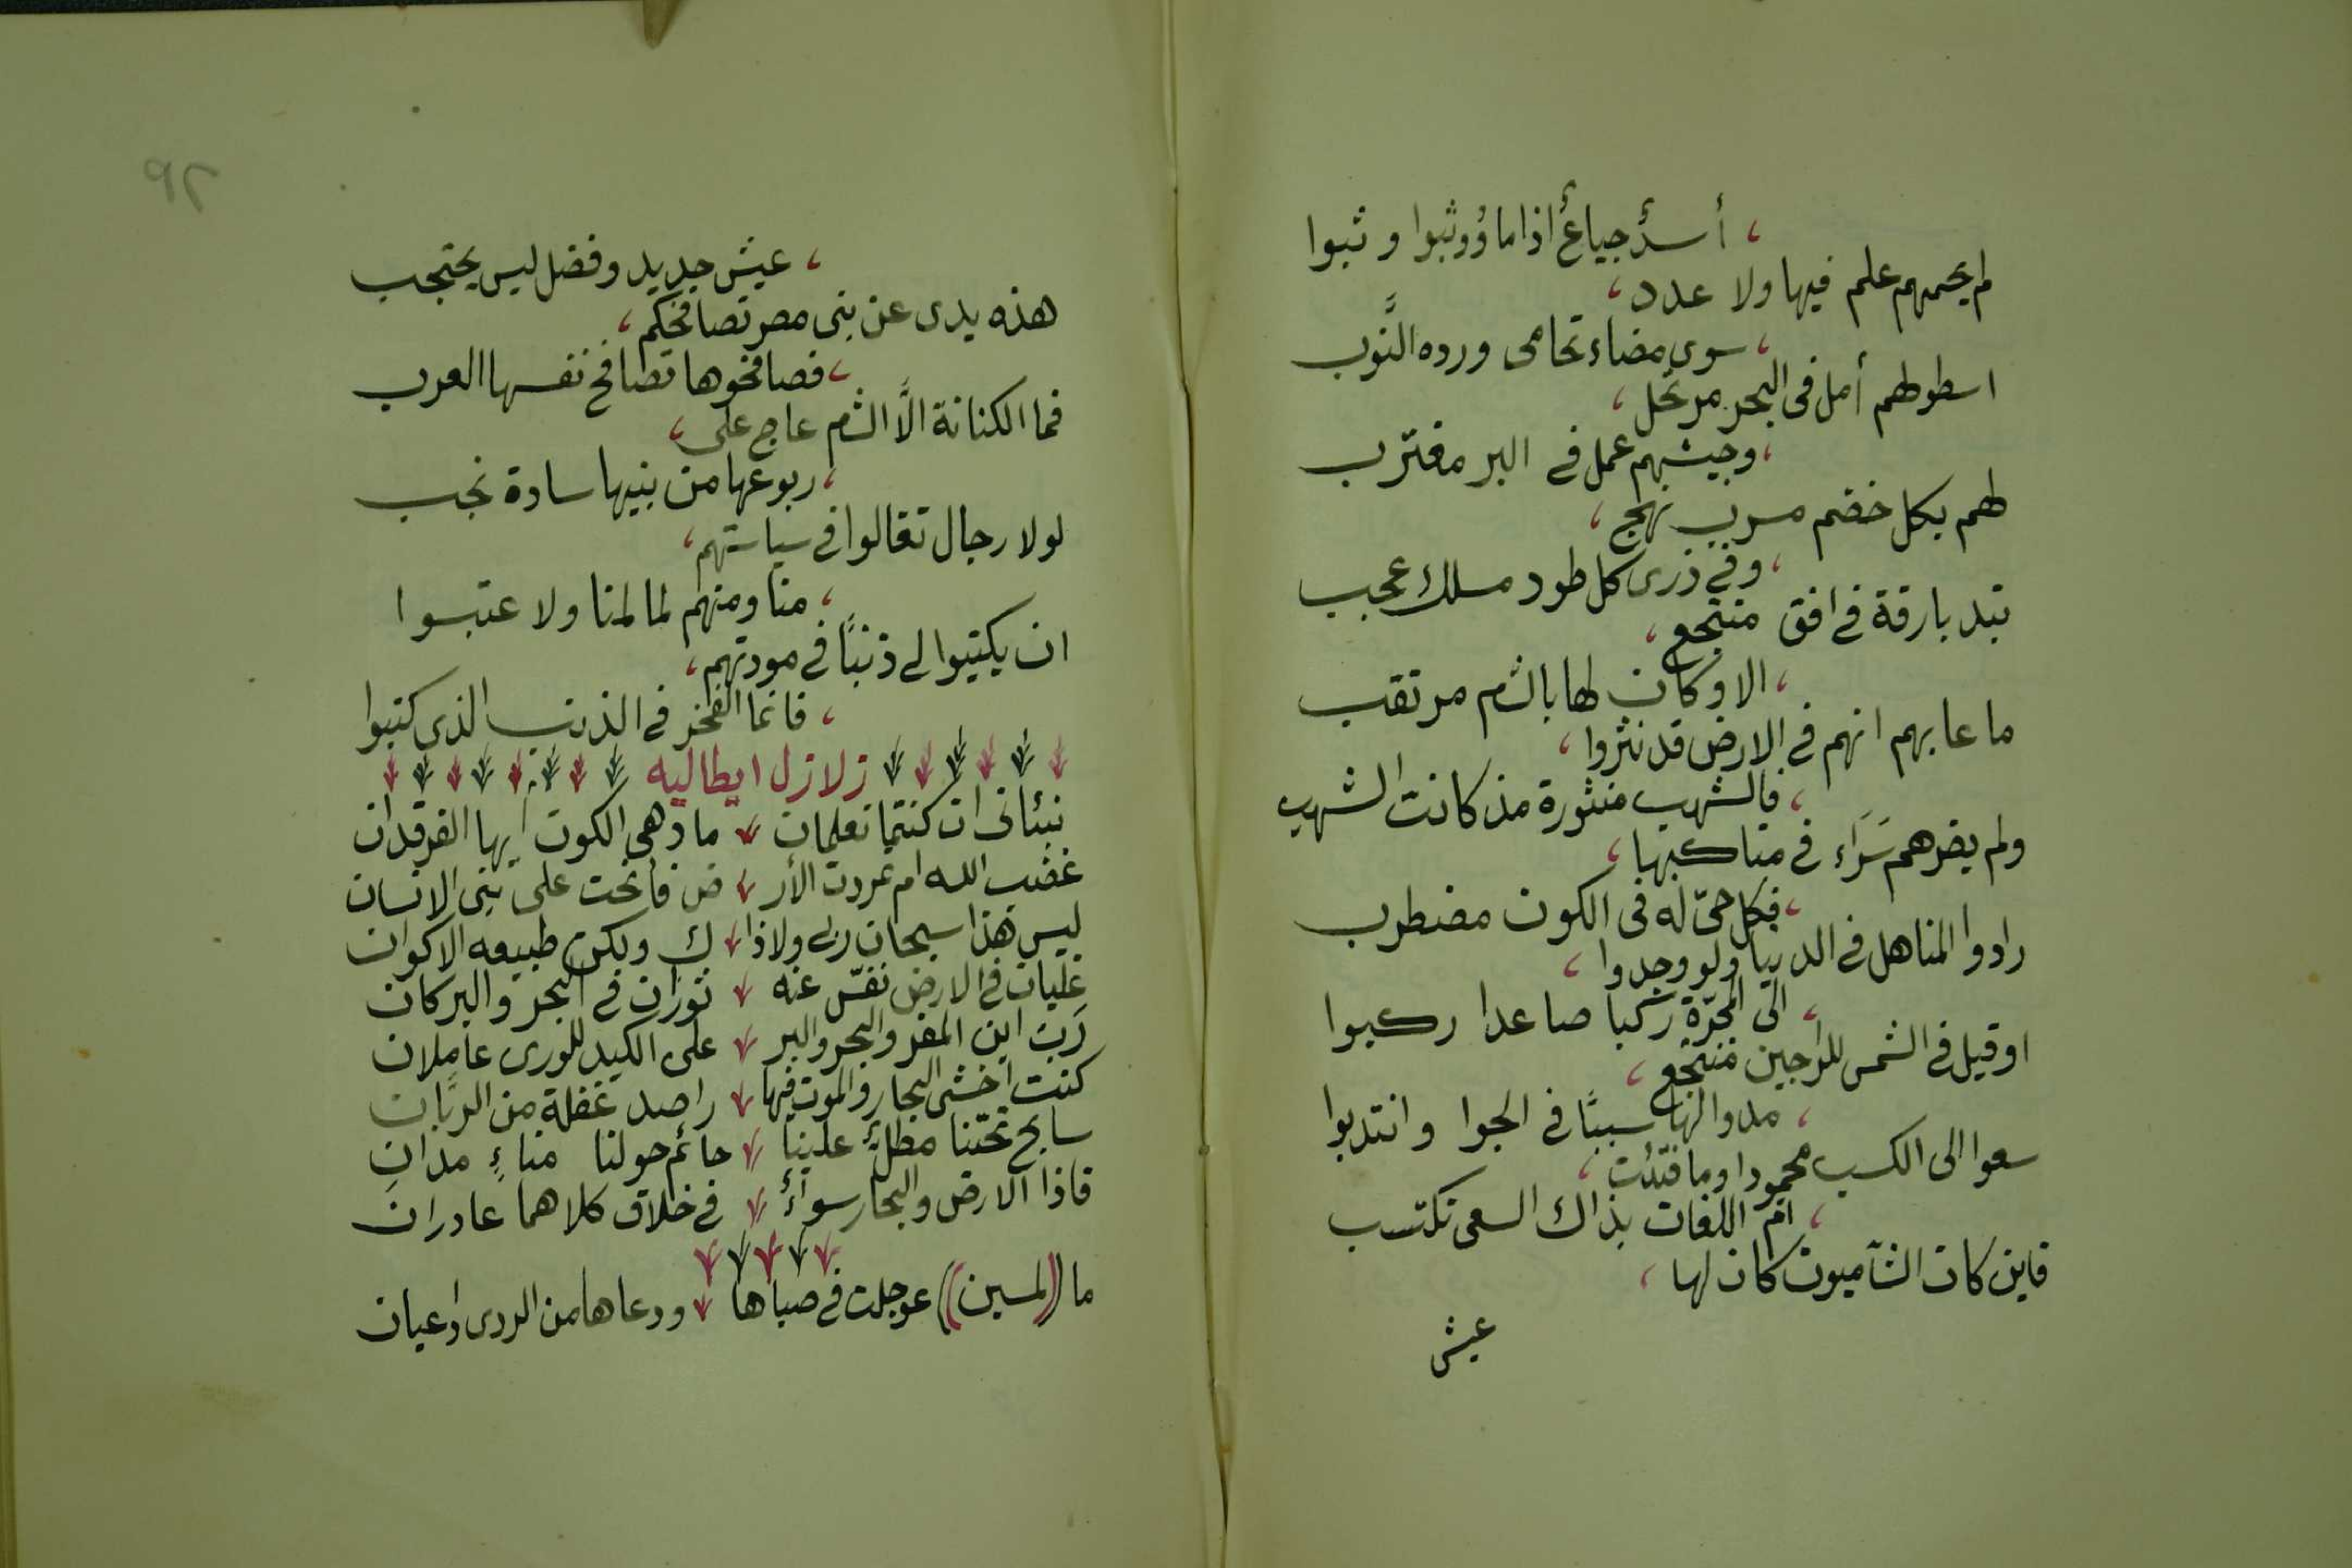 ، أسدٌ جياعٌ اذا ما وُوثبوا وثبوا
لم يحمهم علم فيها ولا عدد ،
، سوى مضاء تحامى ورده النُّوب
اسطولهم أمل فى البحر مرتحل ،
، وجيشهم عمل في البر مغترب
لهم بكل خضم مسرب نهج ،
، وفي ذرى كل طود مسلك عجب
تبد بارقة في افق منتجع ،
، الا وكان لها بالشم مرتقب
ما عابهم انهم في الارض قد نثروا ،
، فالشهب منثورة مذ كانت الشهب
ولم يضرهم سَرَاء في مناكبها ،
، فكل حىّ له فى الكون مضطرب
رادوا المناهل في الدنيا ولو وجدوا ،
، الى المجرّة ركبا صاعدا ركبوا
او قيل في الشمس للراجين منتجع ،
، مدوا لها سببًا في الجوا وانتدبوا
سعوا الى الكسب محمودا وما فتئت ،
، ام اللغات بذاك السعى تكتسب
فاين كان الشآميون كان لها ،
عيش
٩٢
، عيش جديد وفضل ليس يحتجب
هذه يدى عن بنى مصر تصافحكم ،
، فصافحوها تصافح نفسها العرب
فما الكنانة الَّا الشم عاج على ،
، ربوعها من بنيها سادة نجب
لولا رجال تغالوا في سياستهم ،
، منا ومنهم لما لمنا ولا عتبوا
ان يكتبوا لي ذنبًا في مودتهم ،
، فانما الفخر في الذنب الذى كتبوا
زلازل ايطاليه
نبئانى ان كنتما تعلمان ما دهى الكون ايها الفرقدان
غضب الله ام تمردت الأر ض فانحت على بنى الانسان
ليس هذا سبحان ربى ولا ذا ك ولكن طبيعه الاكوان
غليان في الارض نفّس عنه ثوران في البحر والبركان
رَبِّ اين المفر والبحر والبر على الكيد للورى عاملان
كنت اخشى البحار والموت فيها راصد غفلة من الربَّان
سابح تحتنا مطلٌّ علينا حائم حولنا مناءٍ مدان
فاذا الارض والبحار سواءٌ في خلاق كلاهما غادران
ما ((لمسين)) عوجلت في صباها ودعاها من الردى داعيان